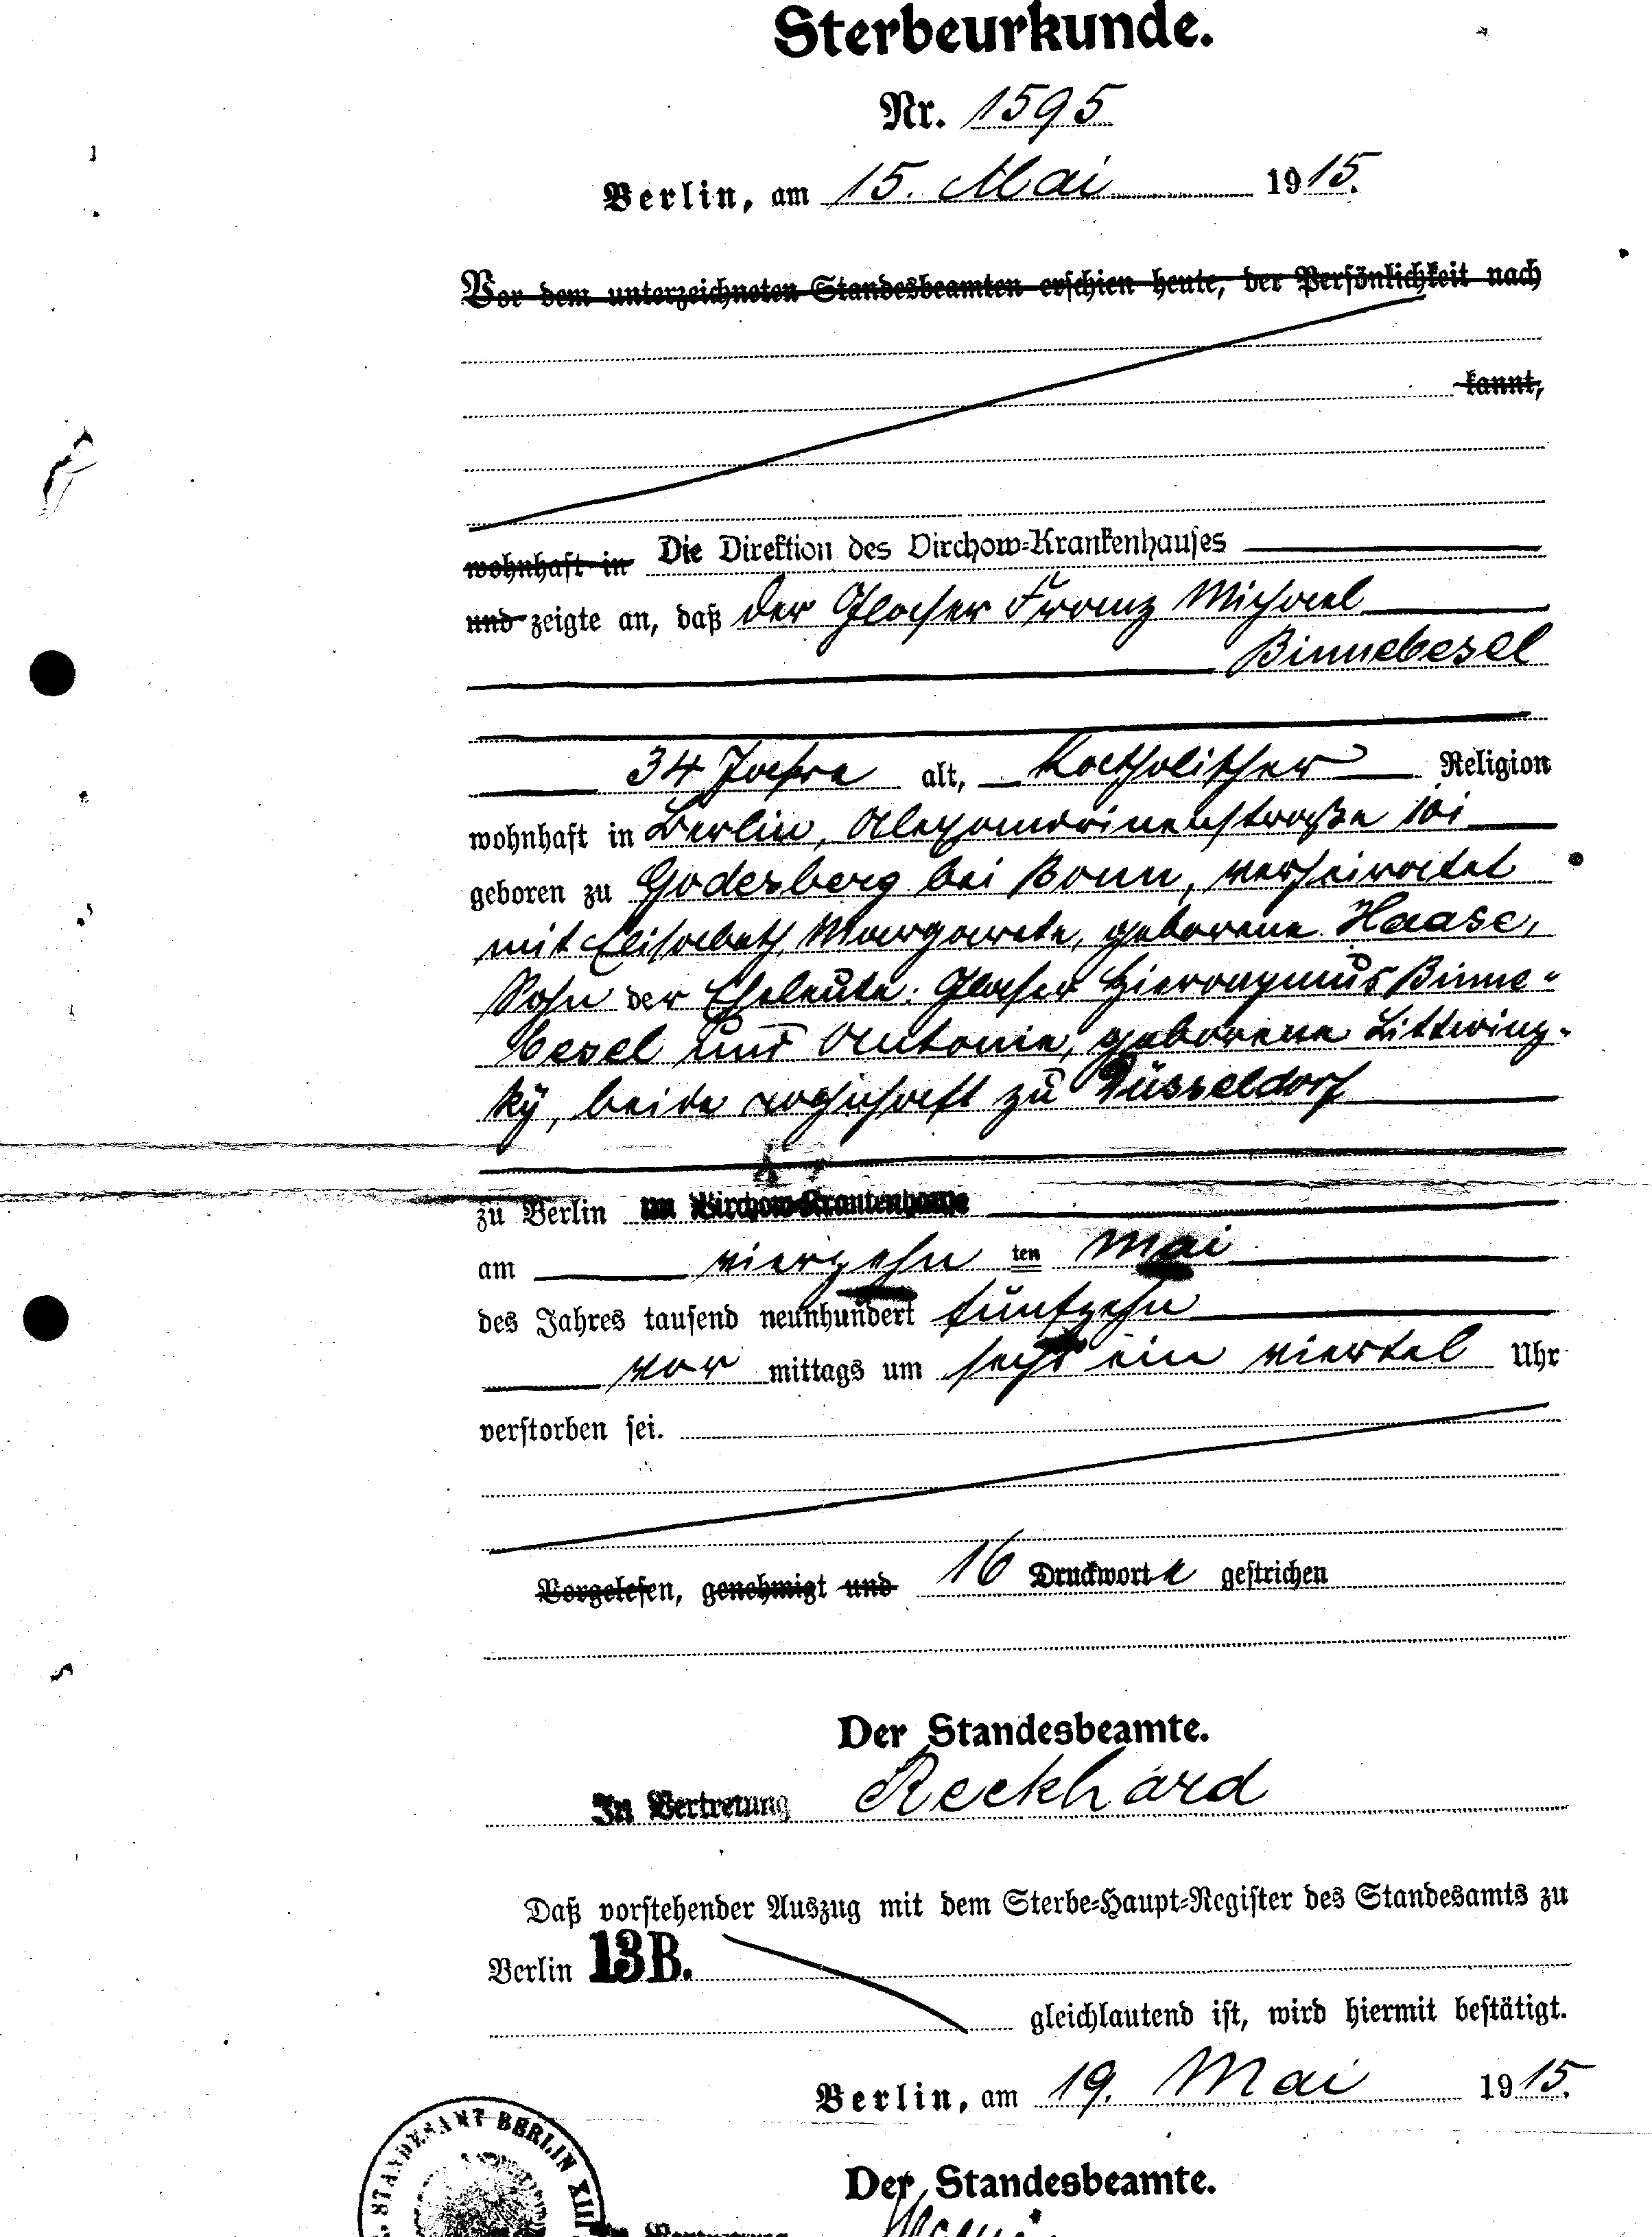 Sterbeurkunde.
Nr. 1595
Berlin, am 15. Mai 1915.
Vor dem unterzeichneten Standesbeamten erschien heute, der Persönlichkeit nach
kannt,
wohnhaft in Die Direktion des Virchow-Krankenhauses
und zeigte an, daß der Glaser Franz Michael
Binnebesel
34 Jahre alt, katholischer Religion
wohnhaft in Berlin, Alexandrinenstraße 101
geboren zu Godesberg bei Bonn, verheiratet
mit Elisabeth, Margarete, geborene Haase,
Sohn der Eheleute: Glaser Hieronymus Binne-
besel und Antonie, geborene Littwinz-
ky, beide wohnhaft zu Düsseldorf
zu Berlin im Virchow-Krankenhause
am vierzehn ten Mai
des Jahres tausend neunhundert fünfzehn
vor mittags um sechs ein viertel Uhr
verstorben sei.
Vorgelesen, genehmigt und 16 Druckworte gestrichen
Der Standesbeamte.
In Vertretung Reckhard
Daß vorstehender Auszug mit dem Sterbe-Haupt-Register des Standesamts zu
Berlin 13B.
gleichlautend ist, wird hiermit bestätigt.
Berlin, am 19. Mai 1915.
STANDESAMT BERLIN XIII
Der Standesbeamte.